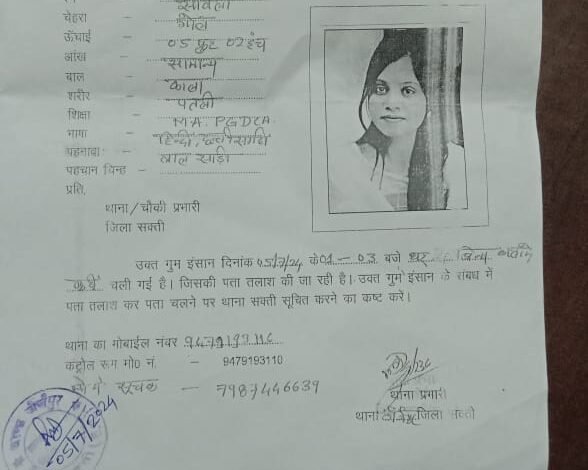 चेहरा - गोल
ऊँचाई - 05 फुट 02 इंच
आंख - सामान्य
बाल - काला
शरीर - पतली
शिक्षा - M.A. PGDCA
भाषा - हिन्दी, छत्तीसगढ़ी
पहनावा - लाल साड़ी
पहचान चिन्ह -
प्रति,
थाना/चौकी प्रभारी
जिला सक्ती
उक्त गुम इंसान दिनांक 05/7/24 के 01-03 बजे घर
चली गई है। जिसकी पता तलाश की जा रही है। उक्त गुम इंसान के संबध में
पता तलाश कर पता चलने पर थाना सक्ती सूचित करने का कष्ट करें।
थाना का मोबाईल नंबर
कंट्रोल रूम मो0 नं. - 9479193110
सूचक - 7987446639
थाना प्रभारी
थाना जिला सक्ती
05/7/2024